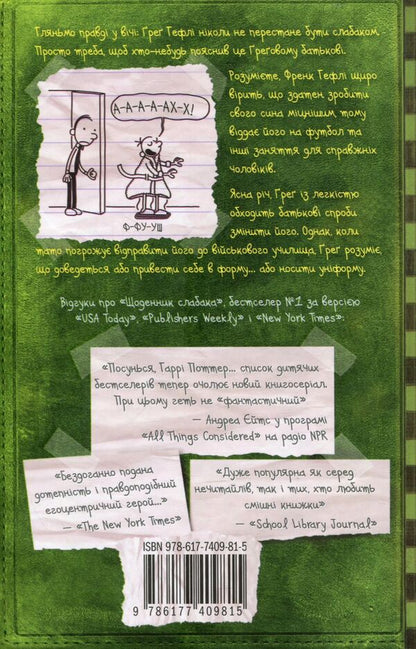 Гляньмо правді у вічі: Ґреґ Гефлі ніколи не перестане бути слабаком.
Просто треба, щоб хто-небудь пояснив це Ґреґовому батькові.
А-А-А-А-АХ-Х!
Ф-ФУ-УШ
Розумієте, Френк Гефлі щиро
вірить, що здатен зробити
свого сина міцнішим, тому
віддає його на футбол та
інші заняття для справжніх
чоловіків.
Ясна річ, Ґреґ із легкістю
обходить батькові спроби
змінити його. Однак, коли
тато погрожує відправити його до військового училища, Ґреґ розуміє,
що доведеться або привести себе в форму... або носити уніформу.
Відгуки про «Щоденник слабака», бестселер №1 за версією
«USA Today», «Publishers Weekly» і «New York Times»:
«Посунься, Гаррі Поттер... список дитячих
бестселерів тепер очолює новий книгосеріал.
При цьому геть не «фантастичний»
— Андреа Ейтс у програмі
«All Things Considered» на радіо NPR
«Бездоганно подана
дотепність і правдоподібний
егоцентричний герой...»
— «The New York Times»
«Дуже популярна як серед
нечитайлів, так і тих, хто любить
смішні книжки»
— «School Library Journal»
ISBN 978-617-7409-81-5
9 786177 409815